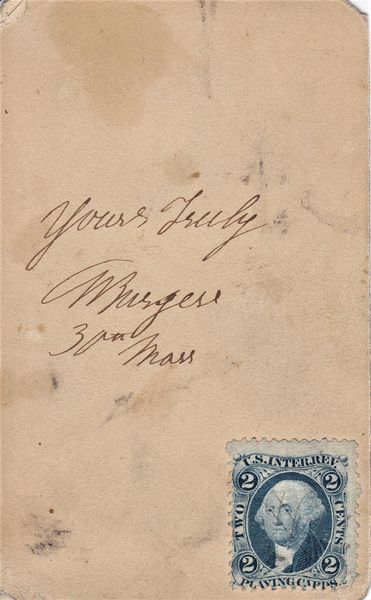 Yours Truly
Burgess
30th Mass
U.S. INTER. REV.
2 2
TWO CENTS
2 2
PLAYING CARDS